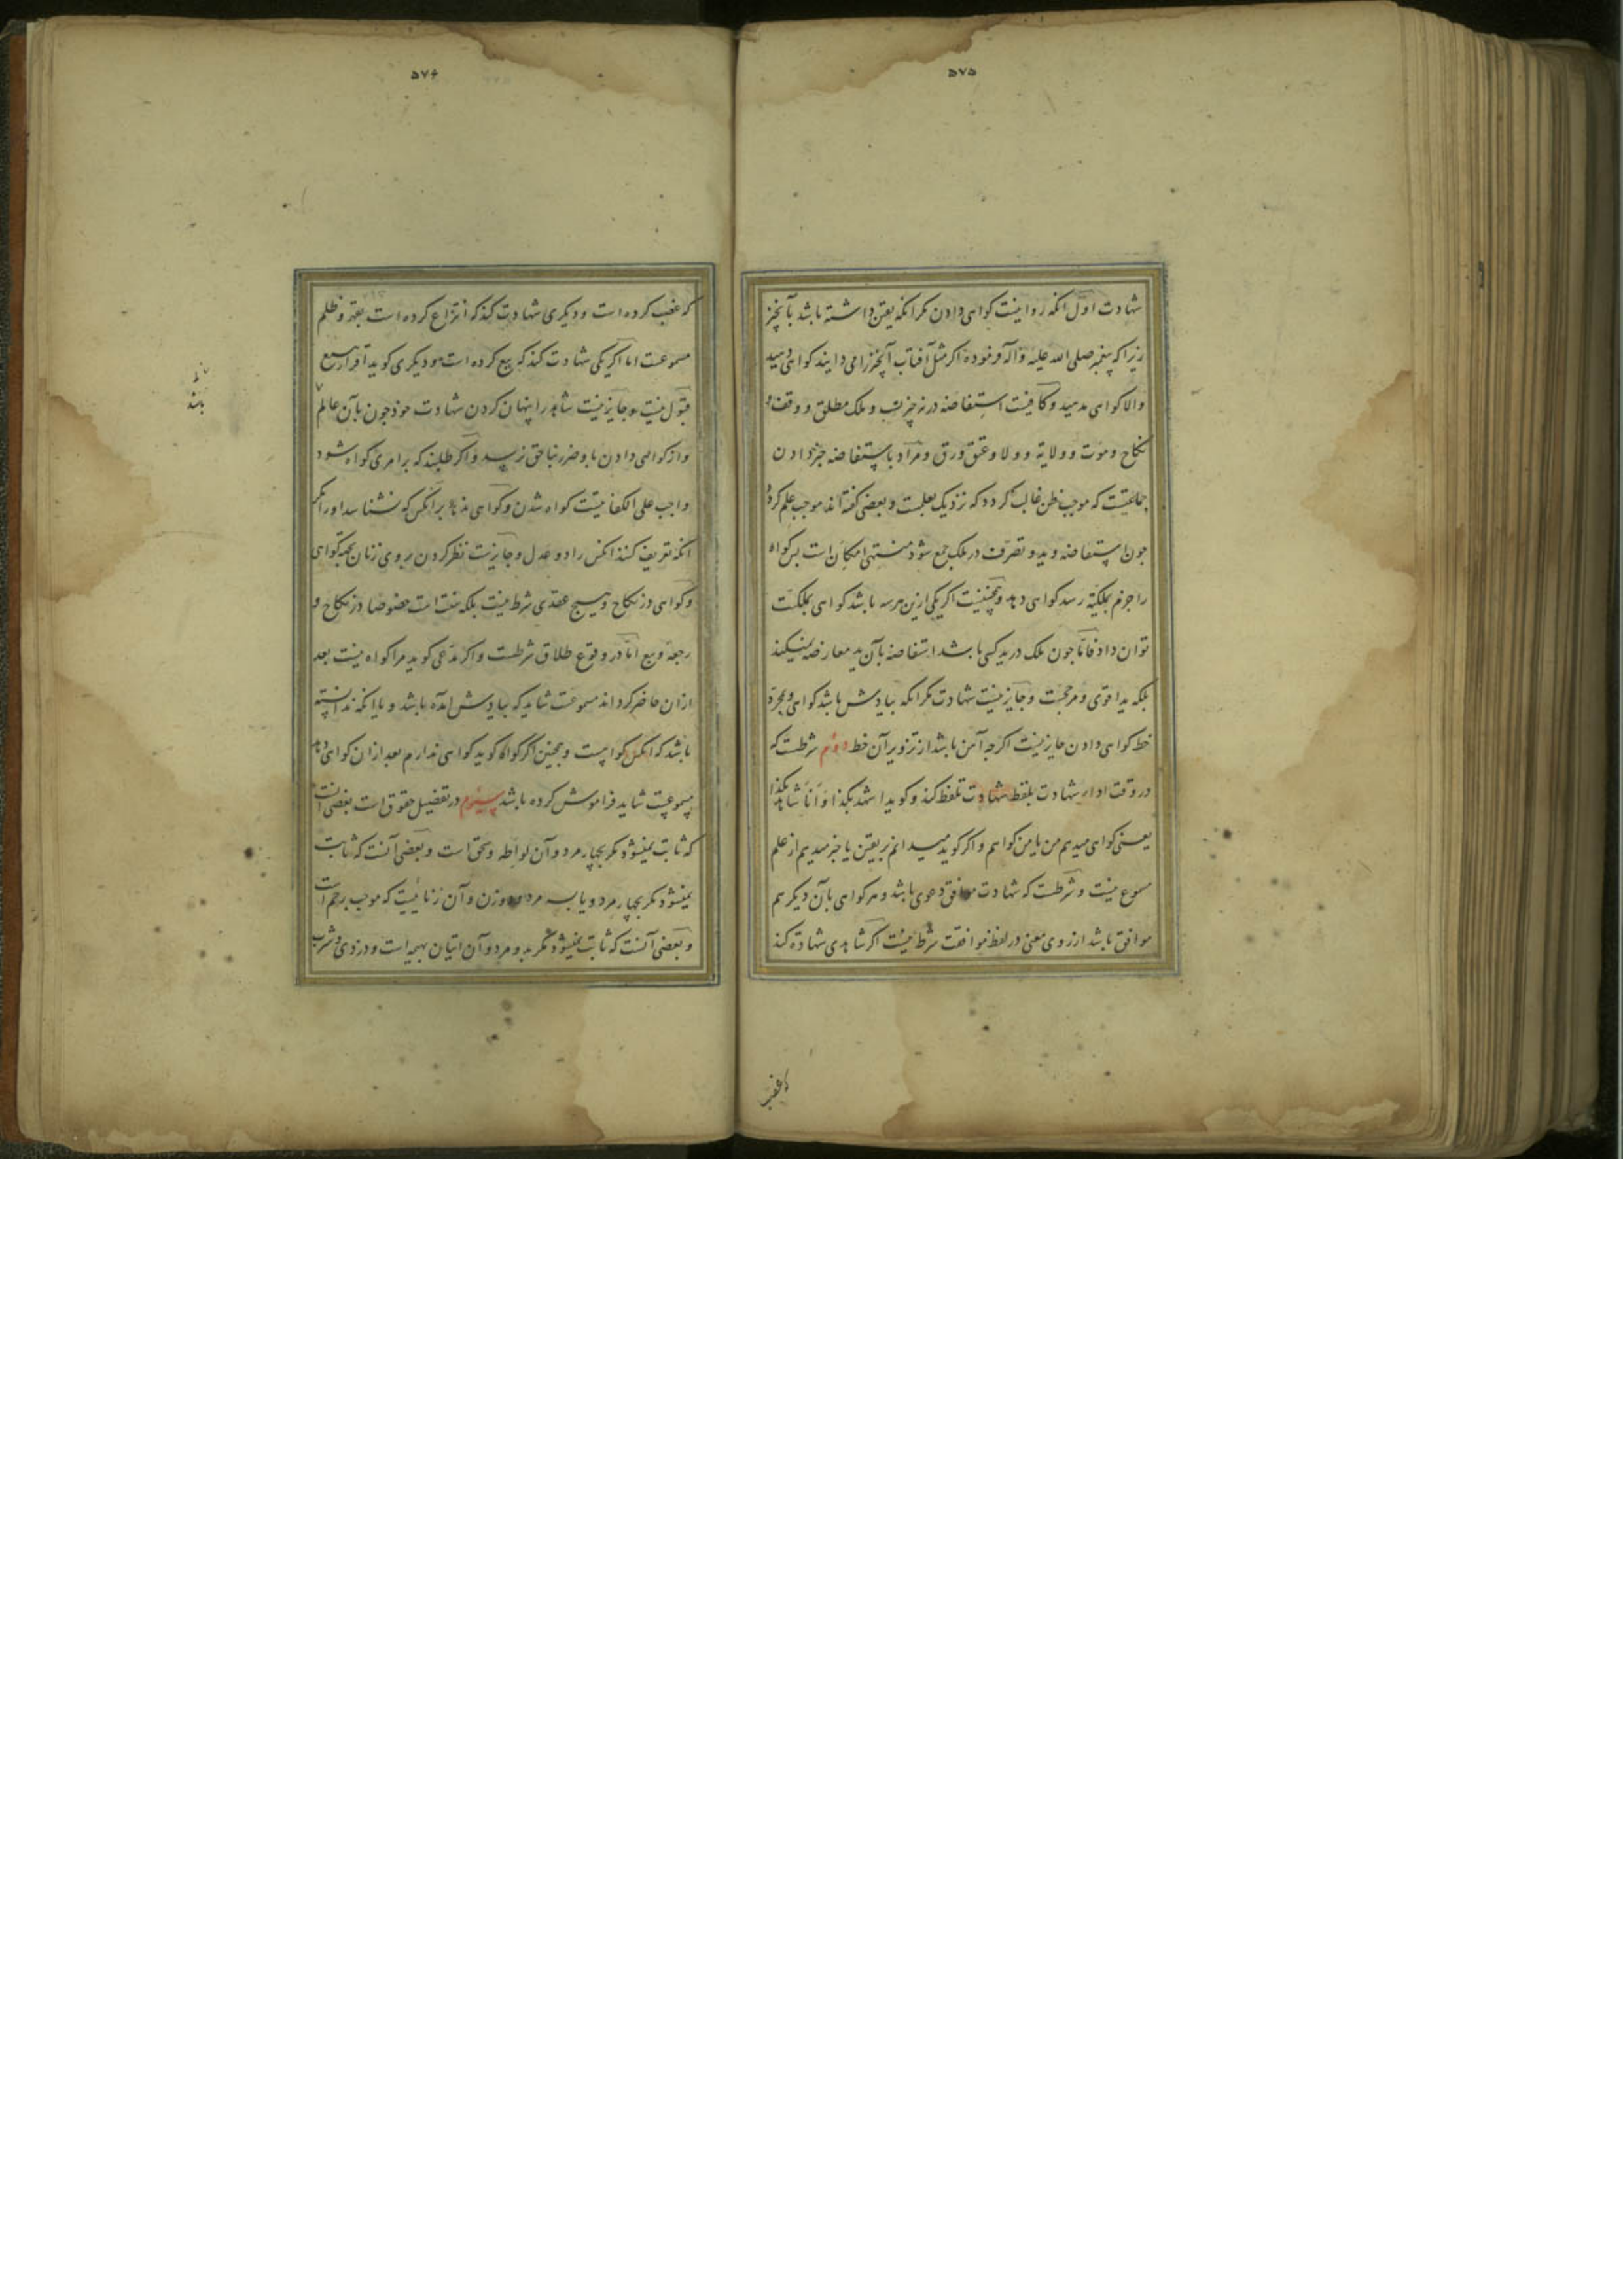 ۵۷۵
شهادت اول انکه روا نیست کواهی دادن مکر انکه یقین داشته باشد بآنچیز
زیرا که پیغمبر صلی الله علیه وآله فرموده اکر مثل آفتاب آنچیز را می دانید کواهی دهید
والا کواهی مدهید وکافیست استفاضه در نه چیز نسب و ملک مطلق و وقف و
نکاح وموت و ولایة و ولا وعتق ورق ومراد باستفاضه خبر دادن
جماعتیست که موجب ظن غالب کردد که نزدیک بعلمست و بعضی کفته اند موجب علم کردد و
چون استفاضه وید و تصرف در ملک جمع شود منتهی امکان است پس کواه
را جزم بملکیة رسد کواهی دهد وهمچنین است اکر یکی ازین هرسه باشد کواهی بملکیت
توان داد فاما چون ملک در ید کسی باشد استفاضه بآن ید معارضه نمیکند
بلکه ید اقوی و مرجحست وجایز نیست شهادت مکر انکه بیادش باشد کواهی وبمجرد
خط کواهی دادن جایز نیست اکرچه آمن باشد از تزویر آن خط دوم شرطست که
در وقت اداء شهادت بلفظ شهادت تلفظ کند وکوید اشهد بکذا و انا شاهد بکذا
یعنی کواهی میدهم من یا من کواهم و اکر کوید میدانم بریقین یا خبر میدهم از علم
مسموع نیست و شرطست که شهادت موافق دعوی باشد و هر کواهی بآن دیکر هم
موافق باشد از روی معنی در لفظ موافقت شرط نیست اکر شاهدی شهادة کند
که غصب
۵۷۶
که غصب کرده است و دیکری شهادت کند که انتزاع کرده است بقهر وظلم
مسموعست اما اکر یکی شهادت کند که بیع کرده است و دیکری کوید اقرار ببیع
قبول نیست و جایز نیست شاهد را پنهان کردن شهادت خود چون بآن عالم
واز کواهی دادن باو ضرر بناحق نرسد واکر طلبند که بر امری کواه شود
واجب علی الکفایتست کواه شدن وکواهی ندهد بر انکس که نشناسد اورا مکر
انکه تعریف کنند انکس را دو عدل و جایزست نظر کردن بروی زنان بجهة کواهی
وکواهی در نکاح وهیچ عقدی شرط نیست بلکه سنت است خصوصا در نکاح و
رجعة وبیع اما در وقوع طلاق شرطست واکر مدعی کوید مرا کواه نیست بعد
ازان حاضر کرداند مسموعست شاید که بیادش آمده باشد و یا انکه ندانسته
باشد که انکس کواهست وهمچنین اکر کواه کوید کواهی ندارم بعد ازان کواهی دهد
مسموعست شاید فراموش کرده باشد سیوم در تفصیل حقوق است بعضی آنست
که ثابت نمیشود مکر بچهار مرد و آن لواطه وسحق است وبعضی آنست که ثابت
نمیشود مکر بچهار مرد ویا بسه مرد ودوزن و آن زنائیست که موجب رجم است
و بعضی آنست که ثابت نمیشود مکر بدو مرد وآن اتیان بهیمه است ودزدی وشرب
باشد